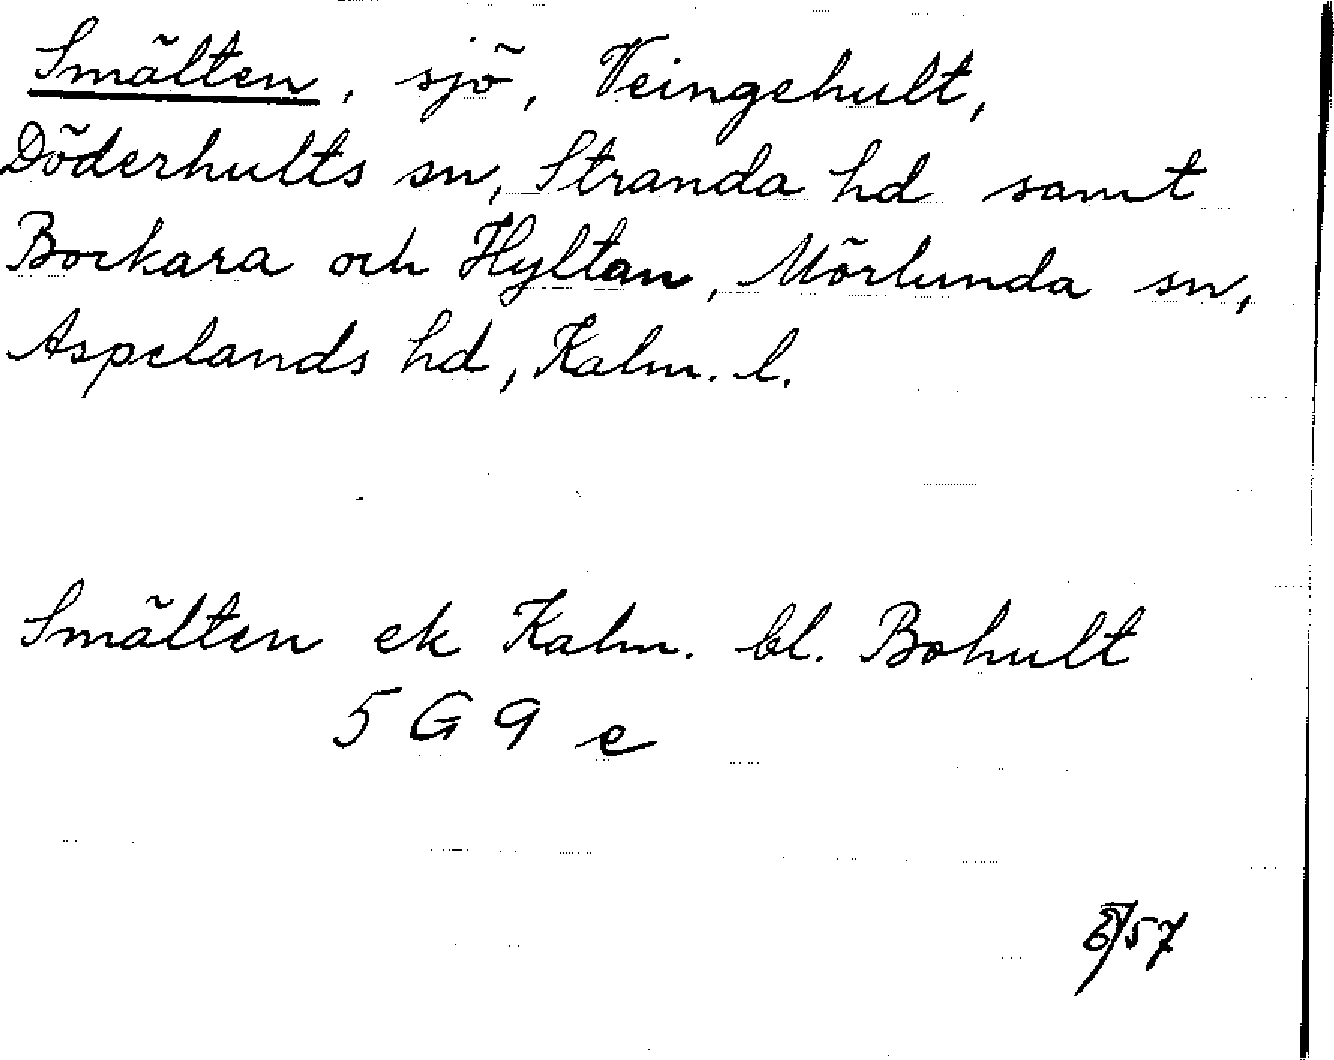 Smälten, sjö, Veingehult,
Döderhults sn, Stranda hd samt
Bockara och Hyltan, Mörlunda sn,
Aspelands hd, Kalm. l.
Smälten ek Kalm. bl. Bohult
5 G 9 e